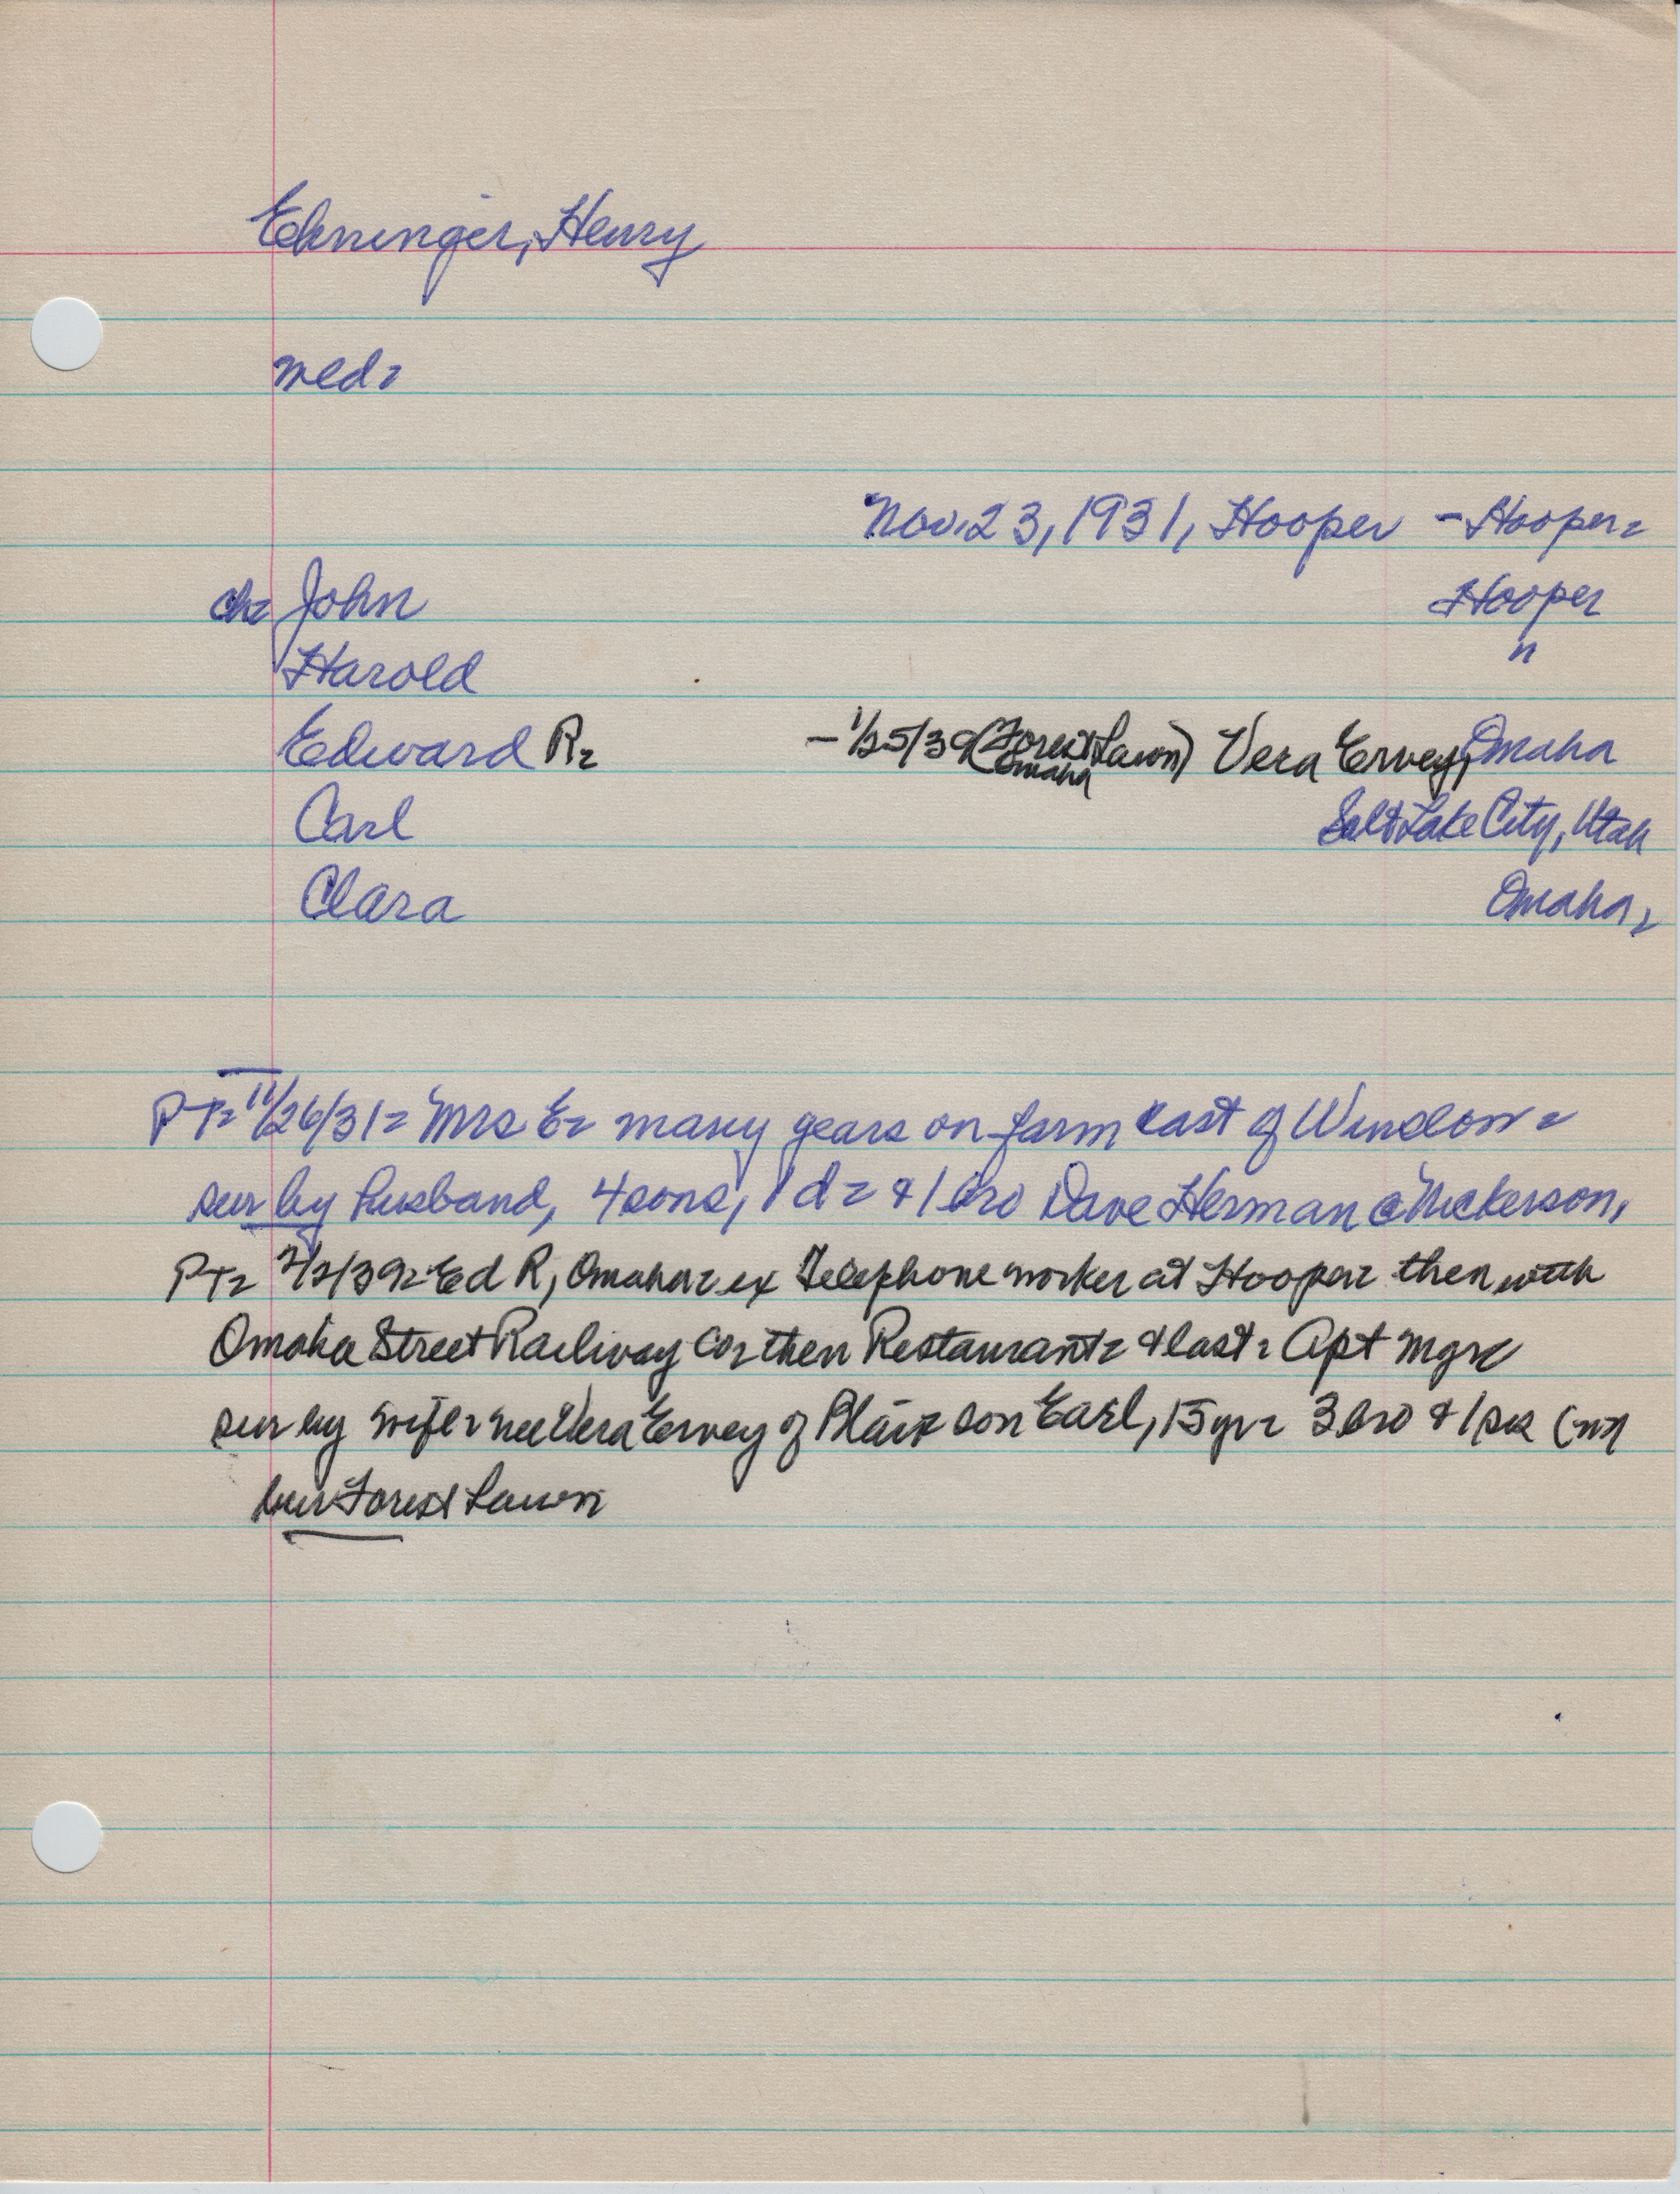 Ehninger, Henry
wed-
Nov. 23, 1931, Hooper - Hooper-
ch- John Hooper
Harold "
Edward R- - 1/25/39 (Forest Lawn) Omaha Vera Ervey, Omaha
Carl Salt Lake City, Utah
Clara Omaha-
PT- 11/26/31- Mrs E- many years on farm east of Winslow-
sur by husband, 4 sons, 1 d- & 1 bro Dave Herman @ Nickerson,
PT- 2/2/39- Ed R, Omaha- ex Telephone worker at Hooper- then with
Omaha Street Railway Co- then Restaurant- & last- Apt Mgr-
sur by wife- nee Vera Ervey of Blair- son Earl, 15 yr- 3 bro & 1 sis
bur Forest Lawn